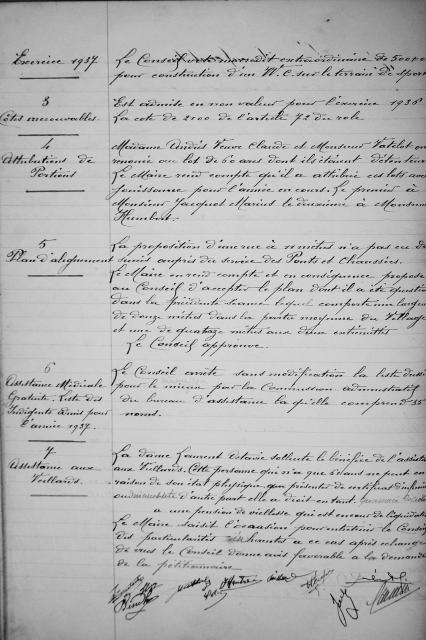 Exercice 1937
Le Conseil vote un crédit extraordinaire de 500
pour construction d'un W.C. sur le terrain de sport
3
Côtes irrecouvrables.
Est admise en non valeur pour l'exercice 1936
La cote de 2100 de l'article 72 du role
4
Attributions de
Portions
Madame André Veuve Claude et Monsieur Vatelot on
renoncé au lot de 60 ares dont ils étaient détenteurs
Le Maire rend compte qu'il a attribué ces lots avec
jouissance pour l'année en cours. Le premier à
Monsieur Jacquot Marius le deuxième à Monsieur
Humbert.
5
Plan d'alignement
La proposition d'amener à 10 mètres n'a pas eu de
suites auprès du service des Ponts et Chaussées.
Le Maire en rend compte et en conséquence propose
au Conseil d'accepter le plan dont il a été question
dans la précédente séance lequel comporte une largeur
de douze mètres dans la partie moyenne du Village
et une de quatorze mètres aux deux extrémités
Le Conseil approuve.
6
Assistance Médicale
Gratuite. Liste des
Indigents admis pour
l'année 1937.
Le Conseil arrête sans modification la liste dressée
pour le même par la Commission administrative
du bureau d'assistance laquelle comprend 35
noms.
7
Assistance aux
Vieillards.
La dame Laurent Octavie sollicite le bénéfice de l'assistance
aux Vieillards. Cette personne qui n'a que 61 ans ne peut en
raison de son état physique que présenter de certificat d'infirmité
ou d'autre part elle a droit en tant
a une pension de vieillesse qui est en cour de liquidation
Le Maire saisit l'occasion pour entretenir le Conseil
des particularités a ce cas après échange
de vues le Conseil donne avis favorable a la demande
de la pétitionnaire